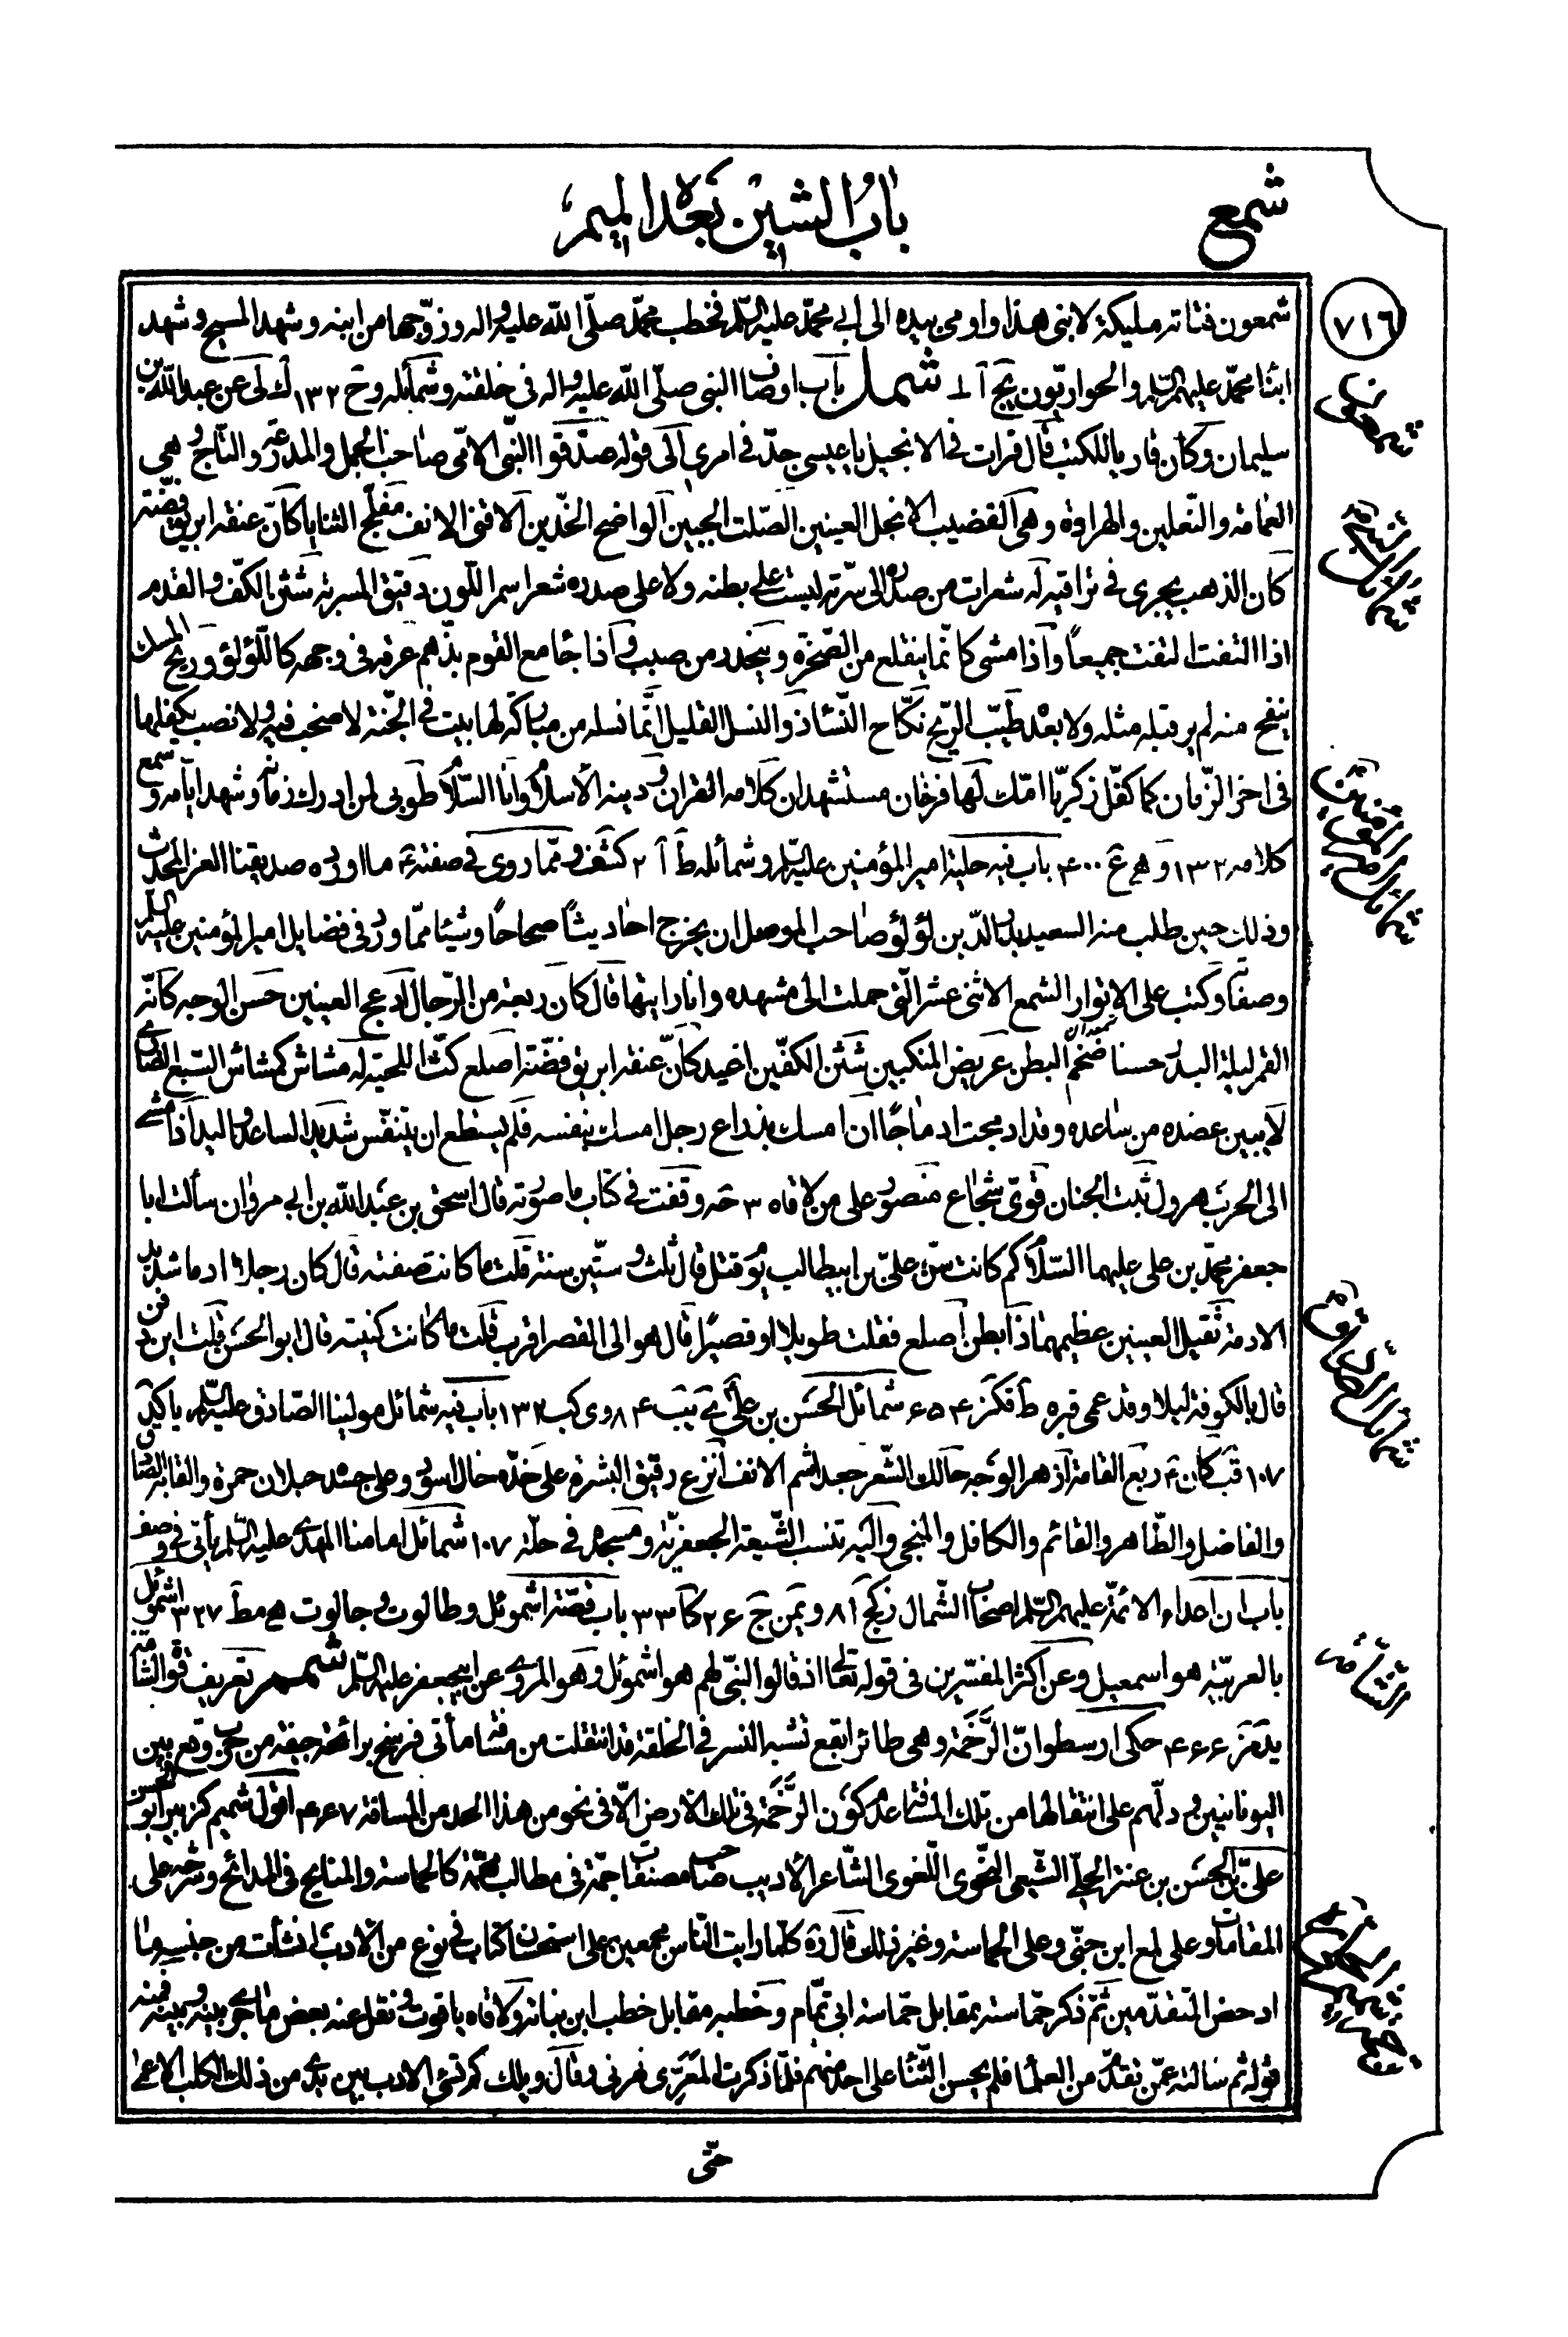 شمع
باب الشين بعده الميم
٧١٦
شمعون فتاته مليكة لابنى هذا واومى بيده الى ابى محمّد عليه السّلم فخطب محمّد صلّى الله عليه واله وزوّجها من ابنه وشهد المسيح وشهد
ابناء محمّد عليهم السّلم والحواريّون يج آ ـ شمل باب اوصاف النبى صلّى الله عليه واله فى خلقته وشمائله و ح ١٣٢ لك لى عن عبد الله بن
سليمان وكان قاريا للكتب قال قرات فى الانجيل يا عيسى جدّ فى امرى الى قوله صدّقوا النّبى الامّى صاحب الجمل والمدرعة والتاج وهى
العمامة والنّعلين والهراوة وهى القضيب الانجل العينين الصّلت الجبين الواضح الخدّين الاقنى الانف مفلّج الثنايا كانّ عنقه ابريق فضّة
كان الذهب يجرى فى تراقيه له شعرات من صدره الى سرّته ليست على بطنه ولا على صدره شعر اسمر اللّون دقيق المسربة شثن الكفّ والقدم
اذا التفت التفت جميعاً واذا مشى كانّما ينقلع من الصّخرة وينحدر من صبب واذا جامع القوم بذّهم عرقه فى وجهه كاللّؤلؤ وريح المسك
ينفح منه لم ير قبله مثله ولا بعده طيّب الرّيح نكّاح النّساء ذو النسل القليل انّما نسله من مباركة لها بيت فى الجنّة لا صخب فيه ولا نصب يكفلها
فى اخر الزّمان كما كفّل زكريّا امّك لها فرخان مستشهدان كلامه القران ودينه الاسلام وانا السّلام طوبى لمن ادرك زمانه وشهد ايّامه وسمع
كلامه ١٣٢ و هج ع ٤٠٠ باب فيه حلية امير المؤمنين عليه السّلم وشمائله ط آ ٢ كشف وممّا روى فى صفته ع ما اورده صديقنا العز المحدّث
وذلك حين طلب منه السعيد بدر الدّين لؤلؤ صاحب الموصل ان يخرج احاديثا صحاحاً وشيئا ممّا ورد فى فضايل امير المؤمنين عليه السّلم
وصفاته وكتب على الانوار الشمع الاثنى عشر الّتى حملت الى مشهده وانا رايتها قال كان ربعة من الرّجال ادعج العينين حسن الوجه كانّه
القمر ليلة البدر حسنا ضخم البطن عريض المنكبين شثن الكفّين اغيد كانّ عنقه ابريق فضّة اصلع كثّ اللحية له مشاش كمشاش السّبع الضارى
لا يبين عضده من ساعده وقد ادمجت ادماجاً ان امسك بذراع رجل امسك بنفسه فلم يستطع ان يتنفّس شديد الساعد واليد اذا مشى
الى الحرب هرول ثبت الجنان قوىّ شجاع منصور على من لاقاه ٣ حه وقفت فى كتاب ما صورته قال اسحق بن عبد الله بن ابى مروان سألت ابا
جعفر محمّد بن على عليهما السّلام كم كانت سنّ علىّ بن ابيطالب يوم قتل قال ثلث وستّين سنة قلت ما كانت صفته قال كان رجلا ادما شديد
الادمة ثقيل العينين عظيمهما ذا بطن اصلع فقلت طويلا او قصيراً قال هو الى القصر اقرب قلت ما كانت كنيته قال ابو الحسن قلت اين دفن
قال بالكوفة ليلا وقد عمى قبره ط قكز ٦٥٤ شمائل الحسن بن علىّ ى يب ٨٤ وى كب ١٣٢ باب فيه شمائل مولينا الصّادق عليه السّلم يا كد
١٠٧ قب كان ع ربع القامة ازهر الوجه حالك الشّعر جعد اشم الانف انزع رقيق البشرة على خدّه خال اسود وعلى جسده حبلان حمرة والقابه الصّادق
والفاضل والطّاهر والقائم والكافل والمنجى واليه تنسب الشّيعة الجعفريّة ومسجده فى حلّة ١٠٧ شمائل امامنا المهدى عليه السّلم يأتى فى وصف
باب ان اعداء الائمّة عليهم السّلم اصحاب الشّمال ز كج ٨١ و يمن ج ٢٦ كا ٣٣ باب قصّة اشموئل وطالوت وجالوت ه مط ٣٢٧ اشموئل
بالعربيّة هو اسمعيل وعن اكثر المفسّرين فى قوله تعالى اذ قالوا لنبىّ لهم هو اشموئل وهو المروى عن ابيجعفر عليه السّلم شمم تعريف قوّة الشامّة
يد مز ٤٦٦ حكى ارسطو انّ الرّخمة وهى طائر ابقع تشبه النسر فى الخلقة قد انتقلت من مسافة مأتى فرسخ برائحة جيفة من حرب وقع بين
اليونانيين ودلّهم على انتقالها من تلك المسافة عدم كون الرّخمة فى تلك الارض الّا فى نحو من هذا الحد من المسافة ٤٦٧ اقول شميم كزبير ابو الحسن
علىّ بن الحسن بن عنتر الحلّى الشّيعى النّحوى اللّغوى الشّاعر الاديب صاحب مصنفات جمّة فى مطالب مهمّة كالحماسة والمنايح فى المدائح وشرحه على
المقامات وعلى لمع ابن جنّى وعلى الحماسة وغير ذلك قال ره كلّما رايت النّاس مجمعين على استحسان كتاب فى نوع من الادب انشأت من جنسه ما
ادحض المتقدّمين ثمّ ذكر حماسته بمقابل حماسة ابى تمّام وخطبه مقابل خطب ابن نباتة ولاقاه ياقوت ونقل عنه بعض ما جرى بينه وبينه فمنه
قوله ثم سألته عمّن تقدّم من العلماء فلم يحسن الثّناء على احد منهم فلمّا ذكرت المعرّى نهرنى وقال ويلك كم تسئ الادب بين يدى من ذلك الكلب الاعمى
حتّى
شمعون